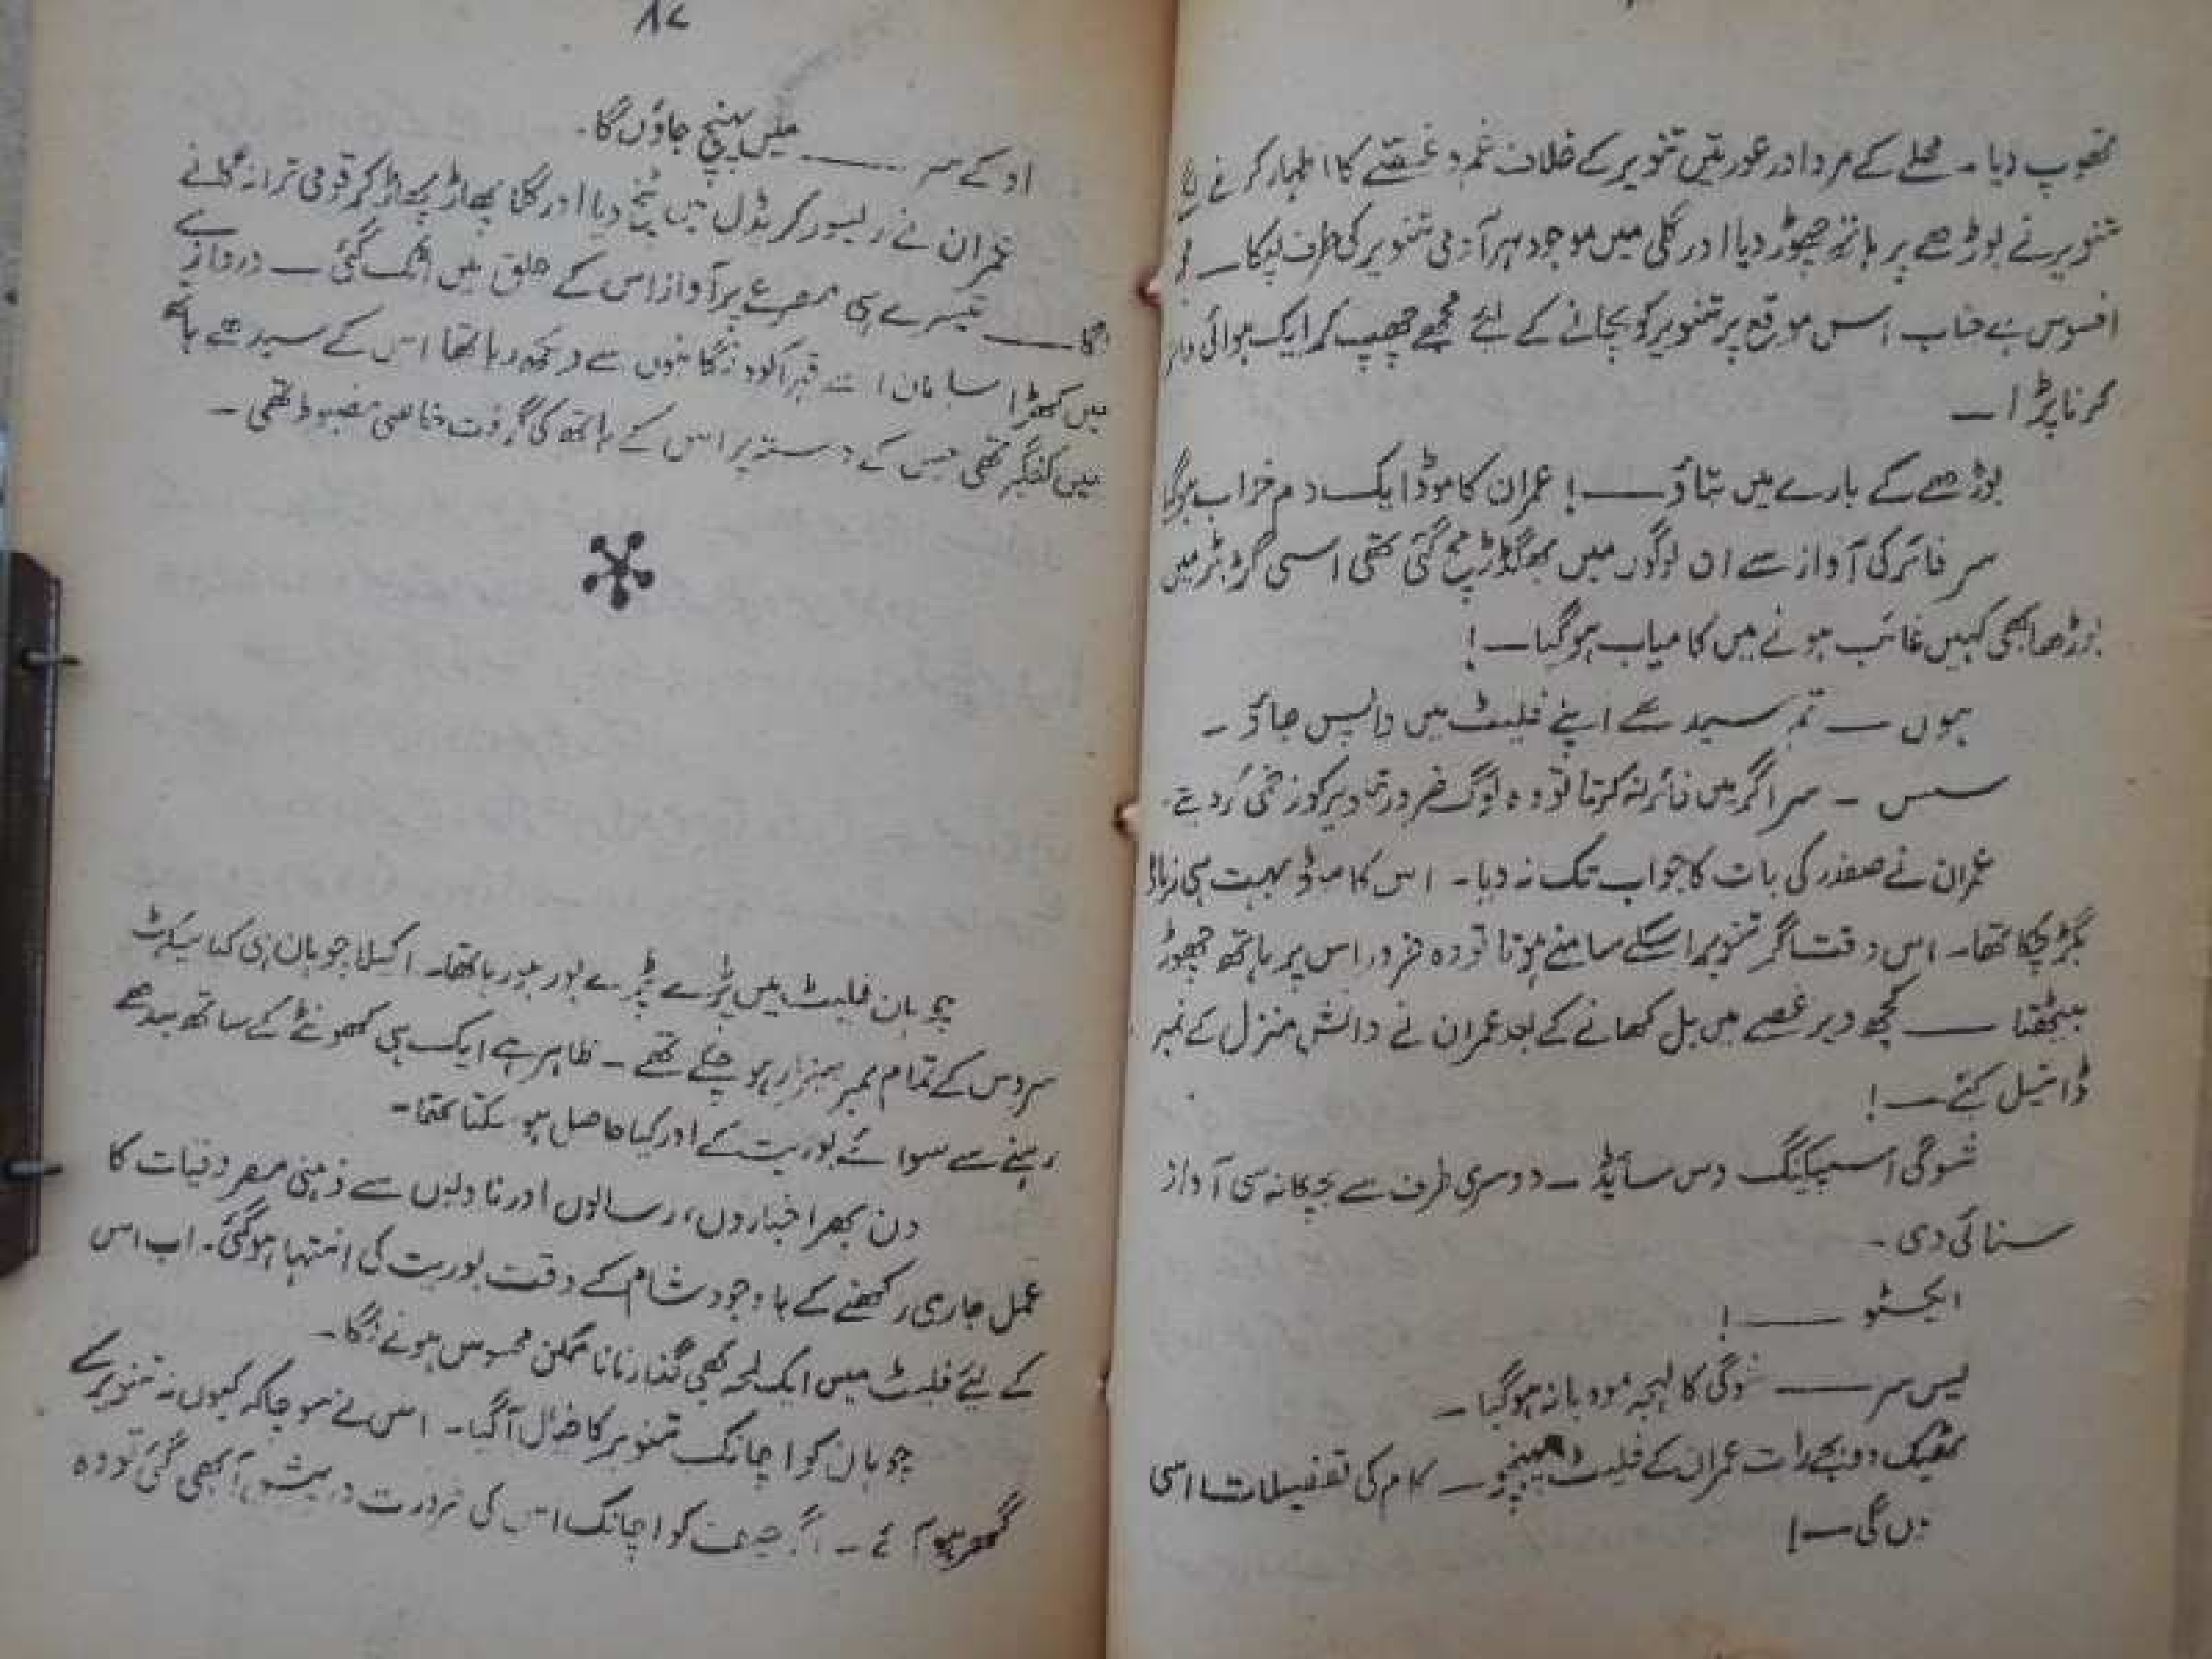 تھوپ دیا ۔ محلے کے مرد اور عورتیں تنویر کے خلاف غم و غصے کا اظہار کرنے لگے
تنویر نے بوڑھے پر ہاتھ چھوڑ دیا اور گلی میں موجود ہر آدمی تنویر کی طرف لپکا ـــ !
افسوس ہے جناب اس موقع پر تنویر کو بچانے کے لئے مجھے چھپ کر ایک ہوائی فائر
کرنا پڑا ـــ
بوڑھے کے بارے میں بتاؤ ـــ ! عمران کا موڈ ایک دم خراب ہو گیا
سر فائر کی آواز سے ان لوگوں میں بھگدڑ مچ گئی تھی اسی گڑبڑ میں
بوڑھا بھی کہیں غائب ہونے میں کامیاب ہو گیا ـــ !
ہوں ـــ تم سیدھے اپنے فلیٹ میں واپس جاؤ ۔
سس ۔ سر اگر میں فائر نہ کرتا تو وہ لوگ ضرور تنویر کو زخمی کر دیتے ۔
عمران نے صفدر کی بات کا جواب تک نہ دیا ۔ اس کا موڈ بہت ہی زیادہ
بگڑ چکا تھا ۔ اس وقت اگر تنویر اسکے سامنے ہوتا تو وہ ضرور اس پر ہاتھ چھوڑ
بیٹھتا ـــ کچھ دیر غصے میں بل کھانے کے بعد عمران نے دانش منزل کے نمبر
ڈائیل کئے ـــ !
شوگی اسپیکنگ دس سائیڈ ـــ دوسری طرف سے بچکانہ سی آواز
سنائی دی ۔
ایکسٹو ـــــ !
یس سر ـــــ شوگی کا لہجہ مودبانہ ہو گیا ۔
ٹھیک دو بجے رات عمران کے فلیٹ پہنچو ـــ کام کی تفصیلات اسی
دں گی ـــ !
۸۷
او کے سر ـــــ میں پہنچ جاؤں گا ۔
عمران نے ریسیور کریڈل میں پٹخ دیا اور گلا پھاڑ پھاڑ کر قومی ترانہ گانے
لگا ـــــ تیسرے ہی مصرعے پر آواز اس کے حلق میں اٹک گئی ـــ دروازے
میں کھڑا سلیمان اسے قہر آلود نگاہوں سے دیکھ رہا تھا اس کے سیدھے ہاتھ
میں کفگیر تھی جس کے دستہ پر اس کے ہاتھ کی گرفت خاصی مضبوط تھی ۔
چوہان فلیٹ میں پڑے پڑے بور ہو رہا تھا ۔ اکیلا چوہان ہی کیا سیکرٹ
سروس کے تمام ممبر بیزار ہو چکے تھے ۔ ظاہر ہے ایک ہی کھونٹے کے ساتھ بندھے
رہنے سے سوائے بوریت کے اور کیا حاصل ہو سکتا تھا ۔
دن بھر اخباروں، رسالوں اور ناولوں سے ذہنی مصروفیات کا
عمل جاری رکھنے کے باوجود شام کے وقت بوریت کی انتہا ہو گئی ۔ اب اس
کے لئے فلیٹ میں ایک لمحہ بھی گذارنا ناممکن محسوس ہونے لگا ۔
چوہان کو اچانک تنویر کا خیال آ گیا ۔ اس نے سوچا کہ کیوں نہ تنویر کے
گھر ہو آئے ۔ اگر چیف کو اچانک اس کی ضرورت درپیش آ بھی گئی تو وہ